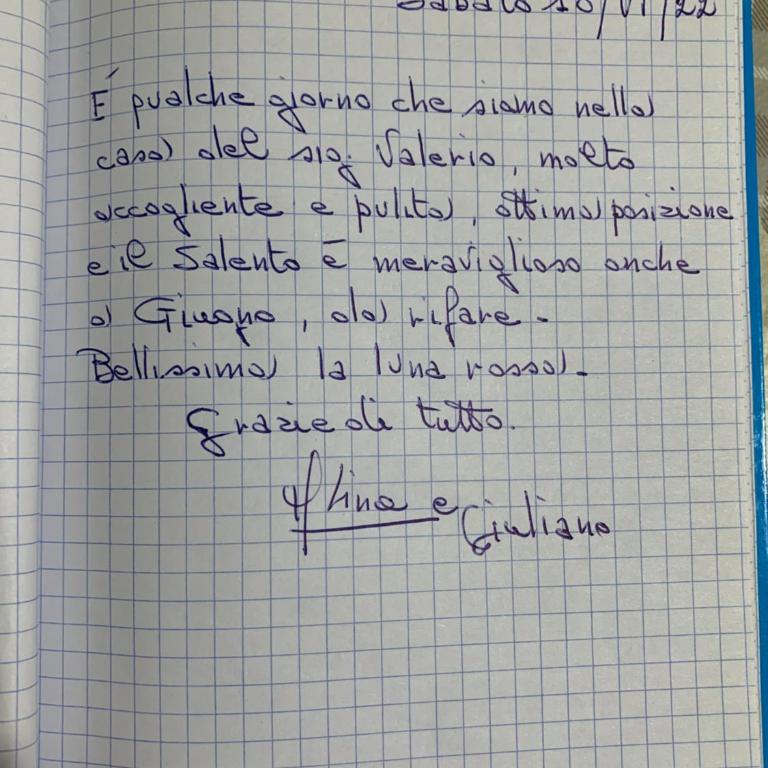 Sabato 18/VI/22
È qualche giorno che siamo nella
casa del sig. Valerio, molto
accogliente e pulita, ottima posizione
e il Salento è meraviglioso anche
a Giugno, da rifare -
Bellissima la luna rossa -
Grazie di tutto.
e Giuliano